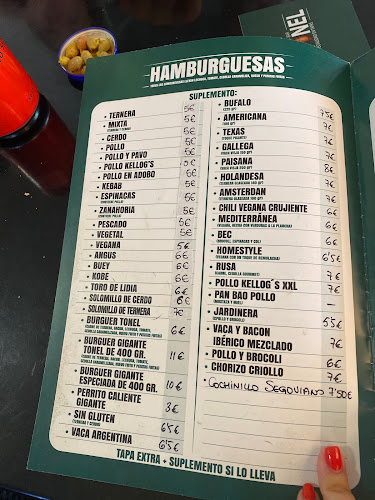 HAMBURGUESAS
SUPLEMENTO:
• TERNERA 5€
• MIXTA 5€
• CERDO 5€
• POLLO 5€
• POLLO Y PAVO 5€
• POLLO KELLOG'S 5€
• POLLO EN ADOBO 5€
• KEBAB 5€
• ESPINACAS 5€
• ZANAHORIA 5€
• PESCADO 5€
• VEGETAL 5€
• VEGANA 5€
• ANGUS 6€
• BUEY 6€
• KOBE 6€
• TORO DE LIDIA 6€
• SOLOMILLO DE CERDO 6€
• SOLOMILLO DE TERNERA 7€
• BURGUER TONEL 6€
• BURGUER GIGANTE
TONEL DE 400 GR. 11€
• BURGUER GIGANTE
ESPECIADA DE 400 GR. 10€
• PERRITO CALIENTE
GIGANTE 3€
• SIN GLUTEN 6'5€
• VACA ARGENTINA 6'5€
• BUFALO
• AMERICANA
• TEXAS 7€
• GALLEGA 7€
• PAISANA
• HOLANDESA 7€
• AMSTERDAM 7€
• CHILI VEGANA CRUJIENTE 6€
• MEDITERRÁNEA 6€
• BEC 6€
• HOMESTYLE 6'5€
• RUSA 7€
• POLLO KELLOG´S XXL 7€
• PAN BAO POLLO –
• JARDINERA 5'5€
• VACA Y BACON
IBÉRICO MEZCLADO 7€
• POLLO Y BROCOLI 6€
• CHORIZO CRIOLLO 7€
• COCHINILLO SEGOVIANO 7'50€
TAPA EXTRA + SUPLEMENTO SI LO LLEVA
NEL